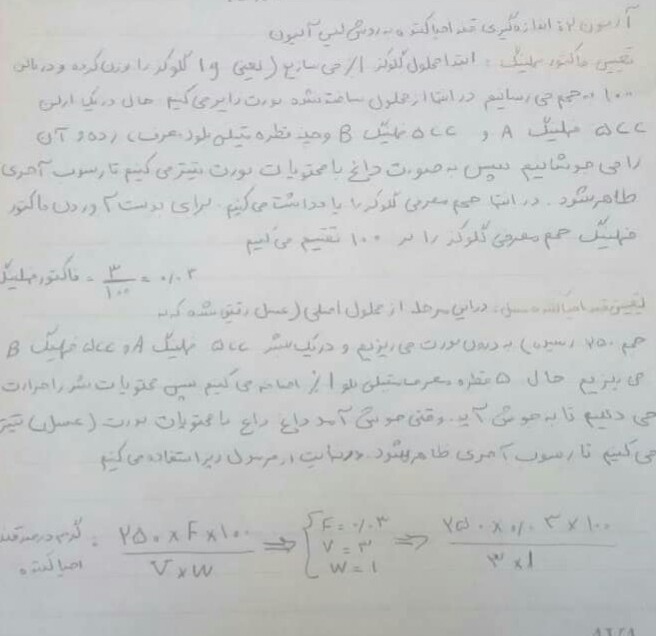 آزمون ۲: اندازه‌گیری قند احیاکننده به روش لین آنیون
تعیین فاکتور فهلینگ: ابتدا محلول گلوکز ۱٪ می سازیم (یعنی ۱g گلوکز را وزن کرده و در بالن
۱۰۰ به حجم می رسانیم در انتها از محلول ساخته شده بورت را پر می کنیم. حال در یک ارلن
۵cc فهلینگ A و ۵cc فهلینگ B و چند قطره متیلن بلو معرف زده و آن
را می جوشانیم سپس به صورت داغ با محتویات بورت تیتر می کنیم تا رسوب آجری
ظاهر شود. در انتها حجم مصرفی گلوکز را یادداشت می کنیم. برای بدست آوردن فاکتور
فهلینگ حجم مصرفی گلوکز را بر ۱۰۰ تقسیم می کنیم
فاکتور فهلینگ = ۳/۱۰۰ = ۰/۰۳
تعیین قند احیاکننده عسل: در این مرحله از محلول اصلی (عسل رقیق شده که به
حجم ۲۵۰ رسیده) به درون بورت می ریزیم و در یک بشر ۵cc فهلینگ A و ۵cc فهلینگ B
می ریزیم حال ۵ قطره معرف متیلن بلو ۱٪ اضافه می کنیم سپس محتویات بشر را حرارت
می دهیم تا به جوش آید. وقتی جوش آمد داغ داغ با محتویات بورت (عسل) تیتر
می کنیم تا رسوب آجری ظاهر شود. در نهایت از فرمول زیر استفاده می کنیم
گرم درصد قند احیاکننده = ۲۵۰ × F × ۱۰۰ / V × W ⇒ { F = ۰/۰۳ V = ۳ W = ۱ ⇒ ۲۵۰ × ۰/۰۳ × ۱۰۰ / ۳ × ۱